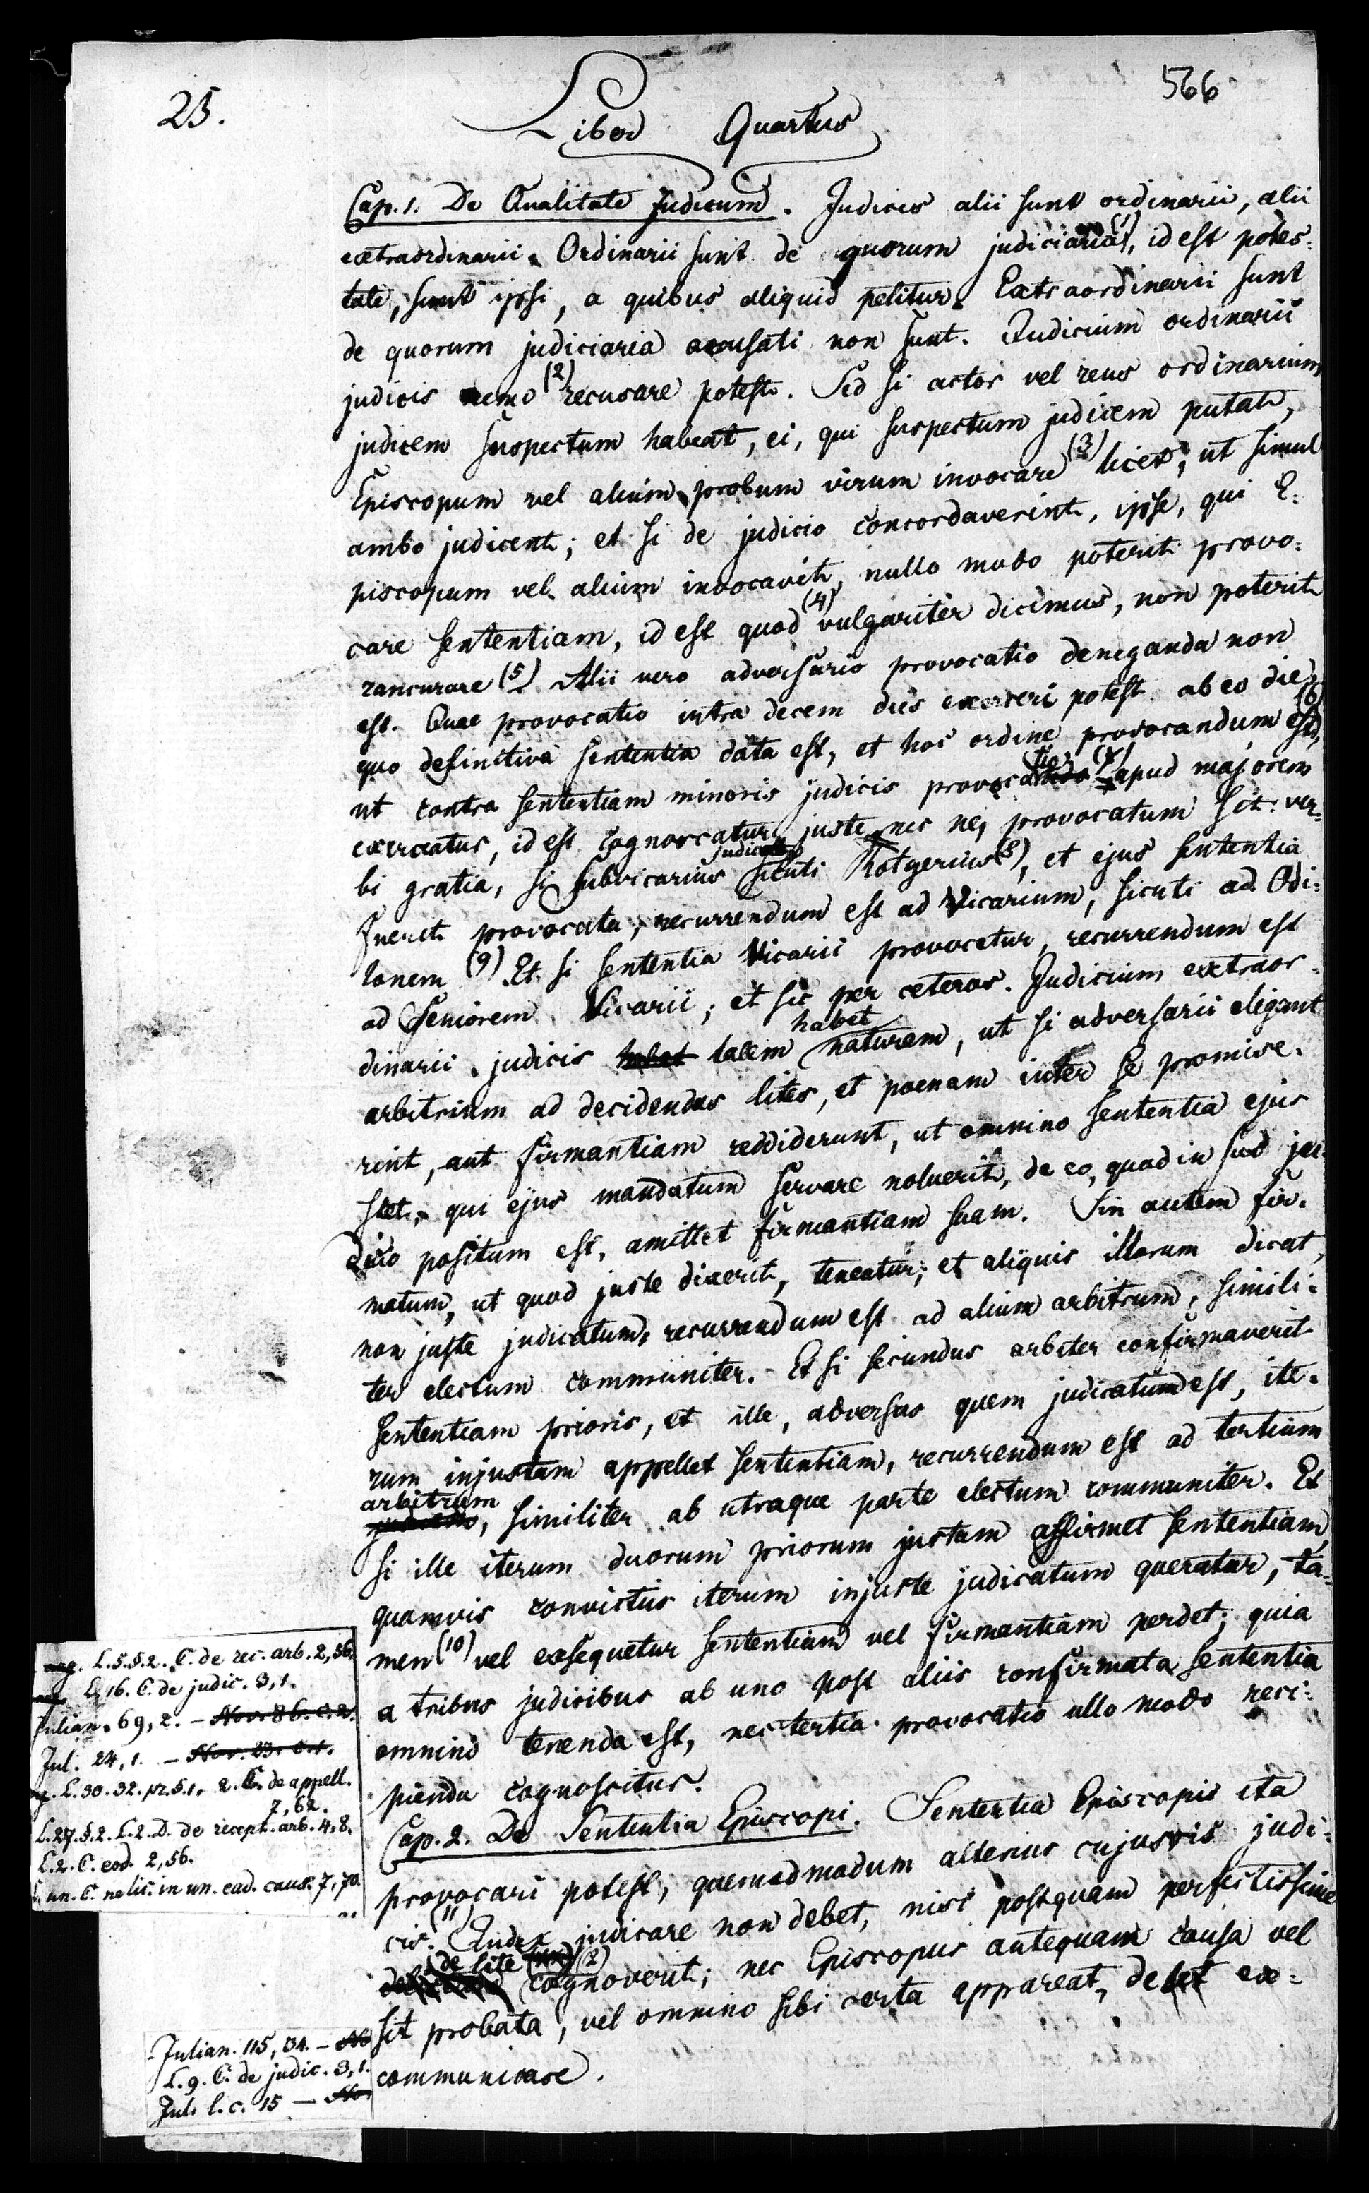 25.
566
Liber Quartus
Cap. 1. De Qualitate Judicum. Judices alii sunt ordinarii, alii
extraordinarii. Ordinarii sunt de quorum judiciaria (1), id est potes-
tate, sunt ipsi, a quibus aliquid petitur. Extraordinarii sunt
de quorum judiciaria accusati non sunt. Judicium ordinarii
judicis nemo (2) recusare potest. Sed si actor vel reus ordinarium
judicem suspectum habeat, ei, qui suspectum judicem putat,
Episcopum vel alium probum virum invocare (3) licet, ut simul
ambo judicent; et si de judicio concordaverint, ipse, qui E-
piscopum vel alium invocavit, nullo modo poterit provo-
care sententiam, id est quod (4) vulgariter dicimus, non poterit
rancurare (5). Alii vero adversario provocatio deneganda non
est. Quae provocatio intra decem dies exerceri potest ab eo die,
quo definitiva sententia data est, et hoc ordine provocandum est (6),
ut contra sententiam minoris judicis provocatio (7) apud majorem
exerceatur, id est cognoscatur, juste nec ne, provocatum sit: ver-
bi gratia, si Subvicarius judicat sicuti Rotgerius (8), et ejus sententia
fuerit provocata, recurrendum est ad Vicarium, sicuti ad Odi-
lonem (9). Et si sententia Vicarii provocetur, recurrendum est
ad Seniorem Vicarii; et sic per ceteros. Judicium extraor-
dinarii judicis habet talem naturam, ut si adversarii elegant
arbitrium ad decidendas lites, et poenam inter se promise-
rint, aut firmantiam reddiderunt, ut omnino sententia ejus
stet, qui ejus mandatum servare noluerit, de eo, quod in suo ju-
dicio positum est, amittet firmantiam suam. Sin autem fir-
matum, ut quod juste dixerit, teneatur; et aliquis illorum dicat,
non juste judicatum, recurrendum est ad alium arbitrum, simili-
ter electum communiter. Et si secundus arbiter confirmaverit
sententiam prioris, et ille, adversus quem judicatum est, ite-
rum injustam appellet sententiam, recurrendum est ad tertium
arbitrum, similiter ab utraque parte electum communiter. Et
si ille iterum duorum priorum justam affirmet sententiam
quamvis convictus iterum injuste judicatum queratur, ta-
men (10) vel exsequetur sententiam vel firmantiam perdet; quia
a tribus judicibus ab uno post aliis confirmata sententia
omnino tenenda est, nec tertia provocatio ullo modo reci-
pienda cognoscitur.
Cap. 2. De Sententia Episcopi. Sententia Episcopis ita
provocari potest, quemadmodum alterius cujusvis judi-
cis. (11) Judex judicare non debet, nisi postquam perfectissime
de lite (12) cognoverit; nec Episcopus antequam causa vel
sit probata, vel omnino sibi certa appareat, debet ex-
communicare.
L. 5. §. 2. C. de rec. arb. 2, 56.
L. 16. C. de judic. 3, 1.
Julian. 69, 2. – Nov. 86. c. 2.
Jul. 24, 1. – Nov. 23. c. 1.
L. 30. 32. pr. §. 1. 2. C. de appell.
7, 62.
L. 27. §. 2. L. 2. D. de recept. arb. 4. 8.
L. 2. C. eod. 2, 56.
L. un. C. ne lic. in un. ead. caus. 7, 70.
Julian. 115, 34. – No
L. 9. C. de judic. 3, 1.
Jul. l. c. 15 – No